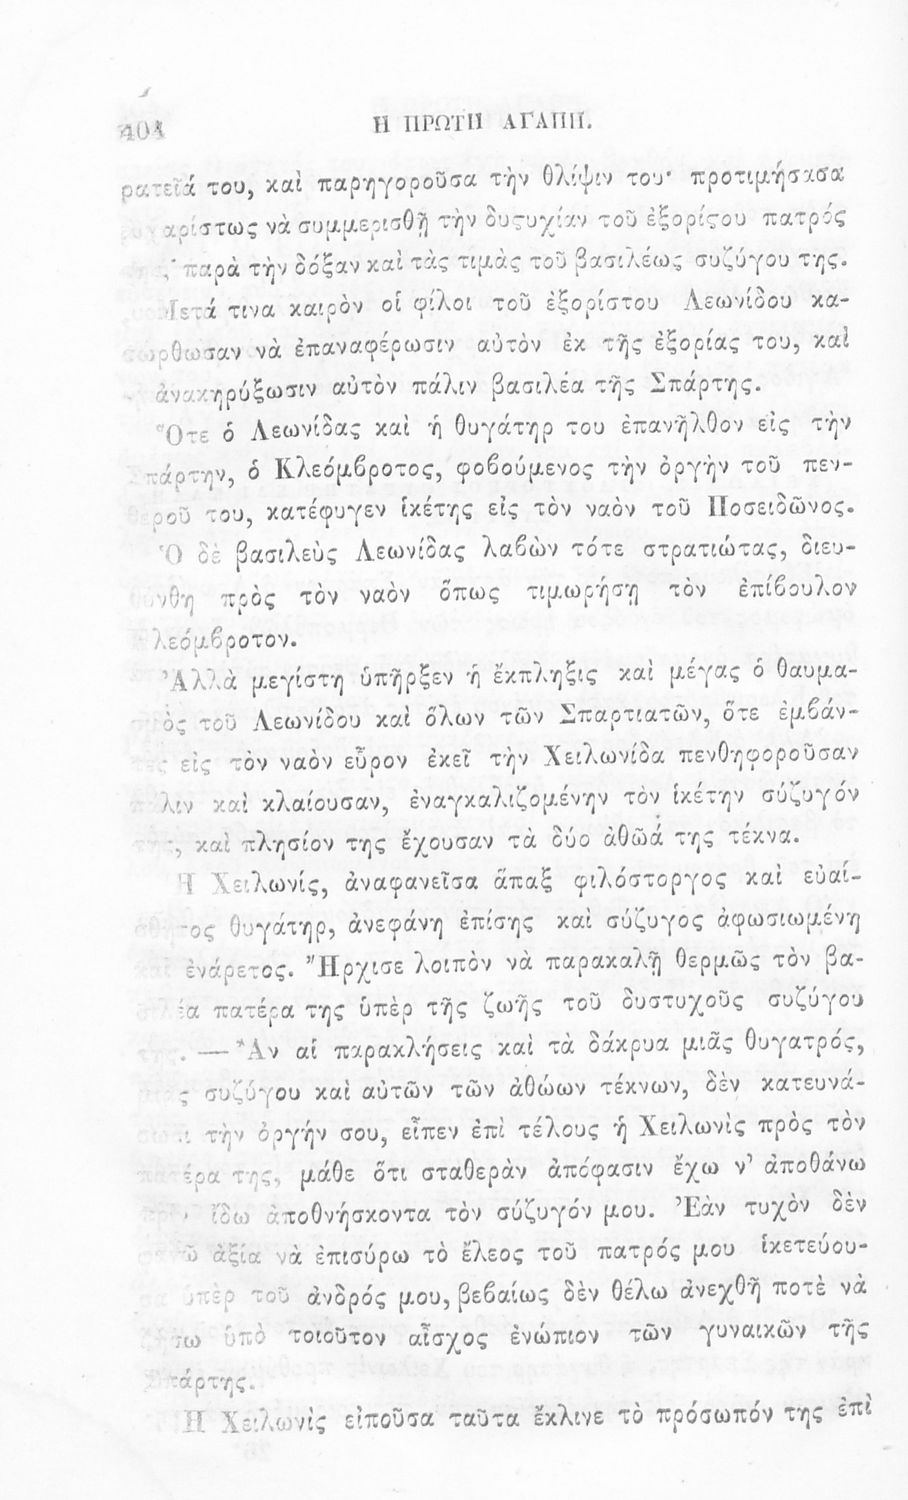 404 Η ΠΡΩΤΗ ΑΓΑΠΗ.
ρατειά του, καὶ παρηγοροῦσα τὴν θλίψιν του· προτιμήσασα
εὐχαρίστως νὰ συμμερισθῇ τὴν δυςυχίαν τοῦ ἐξορίςου πατρός
της, παρὰ τὴν δόξαν καὶ τὰς τιμὰς τοῦ βασιλέως συζύγου της.
Μετά τινα καιρὸν οἱ φίλοι τοῦ ἐξορίστου Λεωνίδου κα-
τωρθωσαν νὰ ἐπαναφέρωσιν αὐτὸν ἐκ τῆς ἐξορίας του, καὶ
ἀνακηρύξωσιν αὐτὸν πάλιν βασιλέα τῆς Σπάρτης.
Ὅτε ὁ Λεωνίδας καὶ ἡ θυγάτηρ του ἐπανῆλθον εἰς τὴν
Σπάρτην, ὁ Κλεόμβροτος, φοβούμενος τὴν ὀργὴν τοῦ πεν-
θεροῦ του, κατέφυγεν ἱκέτης εἰς τὸν ναὸν τοῦ Ποσειδῶνος.
Ὁ δὲ βασιλεὺς Λεωνίδας λαβὼν τότε στρατιώτας, διευ-
θύνθη πρὸς τὸν ναὸν ὅπως τιμωρήσῃ τὸν ἐπίβουλον
Κλεόμβροτον.
Ἀλλὰ μεγίστη ὑπῆρξεν ἡ ἔκπληξις καὶ μέγας ὁ θαυμα-
σμὸς τοῦ Λεωνίδου καὶ ὅλων τῶν Σπαρτιατῶν, ὅτε ἐμβάν-
τες εἰς τὸν ναὸν εὗρον ἐκεῖ τὴν Χειλωνίδα πενθηφοροῦσαν
πάλιν καὶ κλαίουσαν, ἐναγκαλιζομένην τὸν ἱκέτην σύζυγόν
της, καὶ πλησίον της ἔχουσαν τὰ δύο ἀθῶά της τέκνα.
Ἡ Χειλωνίς, ἀναφανεῖσα ἅπαξ φιλόστοργος καὶ εὐαί-
σθητος θυγάτηρ, ἀνεφάνη ἐπίσης καὶ σύζυγος ἀφωσιωμένη
καὶ ἐνάρετος. Ἤρχισε λοιπὸν νὰ παρακαλῇ θερμῶς τὸν βα-
σιλέα πατέρα της ὑπὲρ τῆς ζωῆς τοῦ δυστυχοῦς συζύγου
της. — Ἂν αἱ παρακλήσεις καὶ τὰ δάκρυα μιᾶς θυγατρός,
μιᾶς συζύγου καὶ αὐτῶν τῶν ἀθώων τέκνων, δὲν κατευνά-
σωσι τὴν ὀργήν σου, εἶπεν ἐπὶ τέλους ἡ Χειλωνὶς πρὸς τὸν
πατέρα της, μάθε ὅτι σταθερὰν ἀπόφασιν ἔχω ν' ἀποθάνω
πρὶν ἴδω ἀποθνήσκοντα τὸν σύζυγόν μου. Ἐὰν τυχὸν δὲν
φανῶ ἀξία νὰ ἐπισύρω τὸ ἔλεος τοῦ πατρός μου ἱκετεύου-
σα ὑπὲρ τοῦ ἀνδρός μου, βεβαίως δὲν θέλω ἀνεχθῆ ποτὲ νὰ
ζήσω ὑπὸ τοιοῦτον αἶσχος ἐνώπιον τῶν γυναικῶν τῆς
Σπάρτης.
Ἡ Χειλωνὶς εἰποῦσα ταῦτα ἔκλινε τὸ πρόσωπόν της ἐπὶ